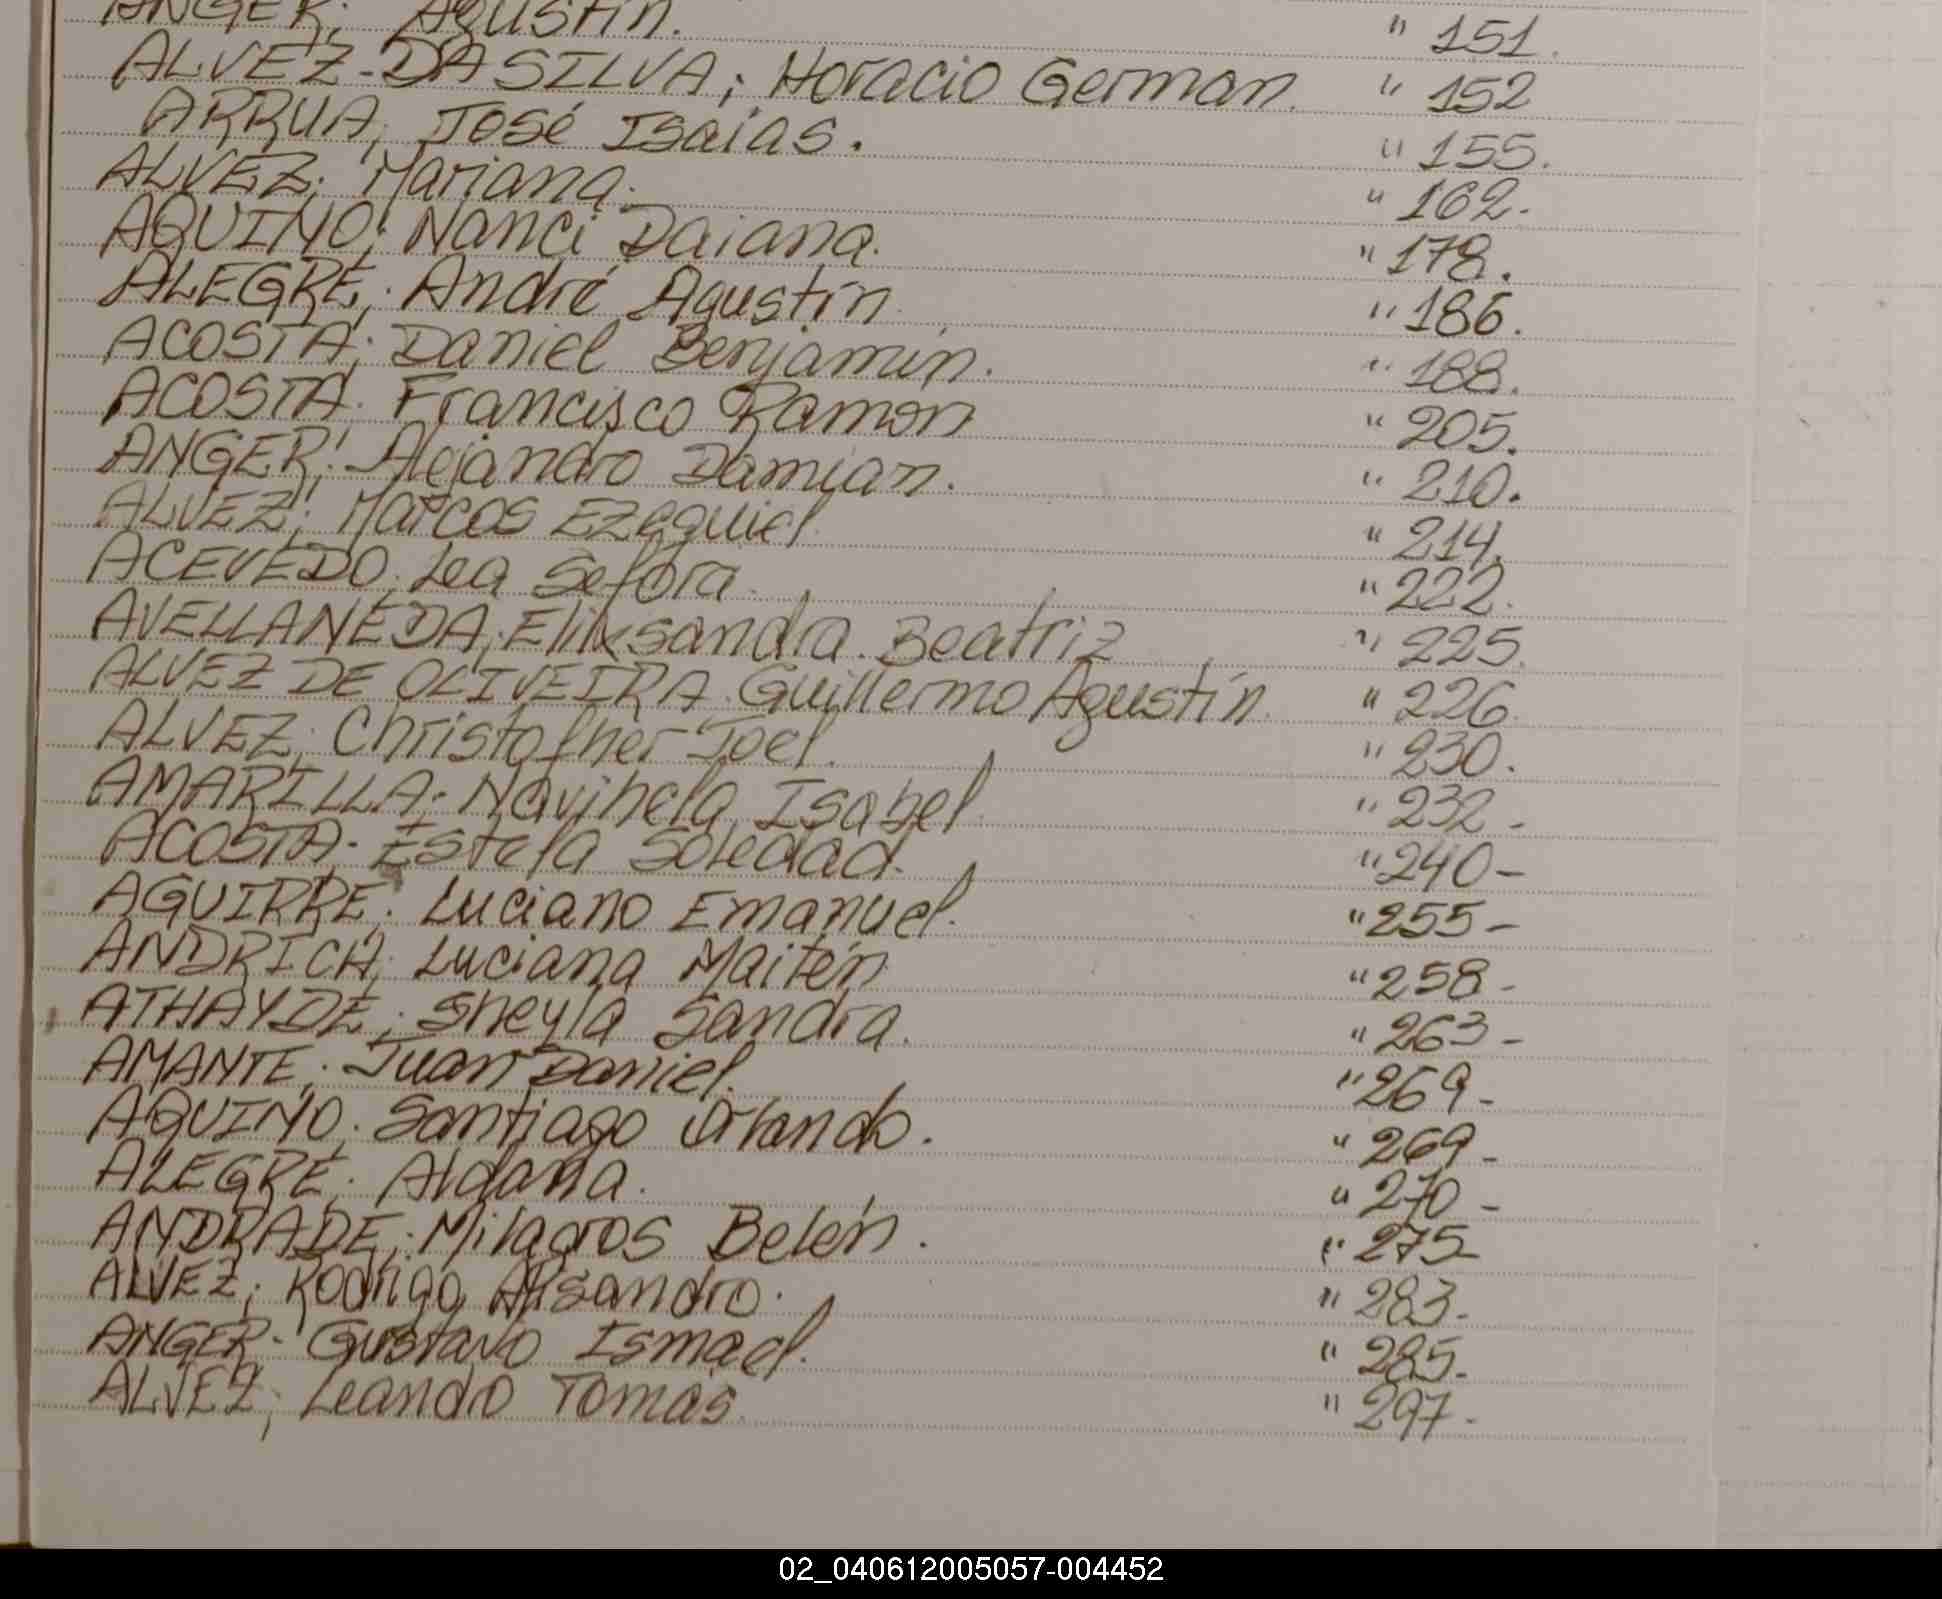 ANGER; Agustín. " 151.
ALVEZ-DA SILVA; Horacio German. " 152
ARRUA; José Isaías. " 155.
ALVEZ; Mariana. " 162.
AQUINO; Nanci Daiana. " 178.
ALEGRE; André Agustín. " 186.
ACOSTA; Daniel Benjamín. " 188.
ACOSTA. Francisco Ramon " 205.
ANGER; Alejandro Damian. " 210.
ALVEZ; Marcos Ezequiel. " 214.
ACEVEDO. Lea Sefora. " 222.
AVELLANEDA; Eliksandra Beatriz " 225.
ALVEZ DE OLIVEIRA. Guillermo Agustín. " 226.
ALVEZ; Christofher Joel. " 230.
AMARILLA; Navihela Isabel. " 232-
ACOSTA- Estela Soledad. " 240-
AGUIRRE. Luciano Emanuel. " 255-
ANDRICH; Luciana Maitén. " 258-
ATHAYDE; Sheyla Sandra. " 263-
AMANTE; Juan Daniel. " 269-
AQUINO. Santiago Orlando. " 269-
ALEGRE; Aldana. " 270-
ANDRADE; Milagros Belén. " 275-
ALVEZ; Rodrigo Alisandro. " 283-
ANGER- Gustavo Ismael. " 285.
ALVEZ; Leando Tomás. " 297-
02_040612005057-004452